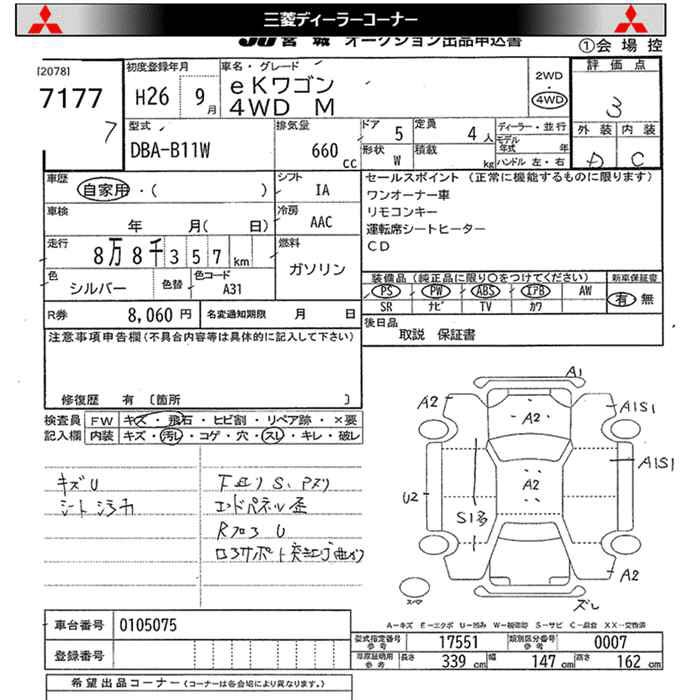 三菱ディーラーコーナー
JU宮城 オークション出品申込書
①会場控
[2078]
7177
7
初度登録年月
H26 9月
車名・グレード
eKワゴン
4WD M
2WD
4WD
評価点
3
外装 内装
D C
型式
DBA-B11W
排気量
660 cc
ドア 5
形状 W
定員 4人
積載 kg
ディーラー・並行
モデル年式 年
ハンドル 左・右
車歴
自家用・( )
シフト
IA
車検
年 月( 日)
冷房
AAC
走行
8万8千357km
燃料
ガソリン
色
シルバー
色替
色コード
A31
R券 8,060円
名変通知期限 月 日
セールスポイント (正常に機能するものに限ります)
ワンオーナー車
リモコンキー
運転席シートヒーター
CD
装備品(純正品に限り○をつけてください)
新車保証書
PS PW ABS エアB AW
有 無
SR ナビ TV カワ
後日品
取説 保証書
注意事項申告欄(不具合内容等は具体的に記入して下さい)
修復歴 有 [箇所 ]
検査員記入欄
FW キズ・飛石・ヒビ割・リペア跡・×要
内装 キズ・汚レ・コゲ・穴・スレ・キレ・破レ
キズU
エンドパネル歪
Rフロア U
A1
A2
A2
A1S1
A1S1
A2
U2
S1多
A2
スペア
ズレ
A-キズ E-エクボ U-凹み W-補修跡 S-サビ C-腐食 XX-交換済
車台番号 0105075
登録番号
型式指定番号参考 17551
類別区分番号参考 0007
車庫証明用参考 長さ 339cm 幅 147cm 高さ 162cm
希望出品コーナー (コーナーは各会場により異なります。)